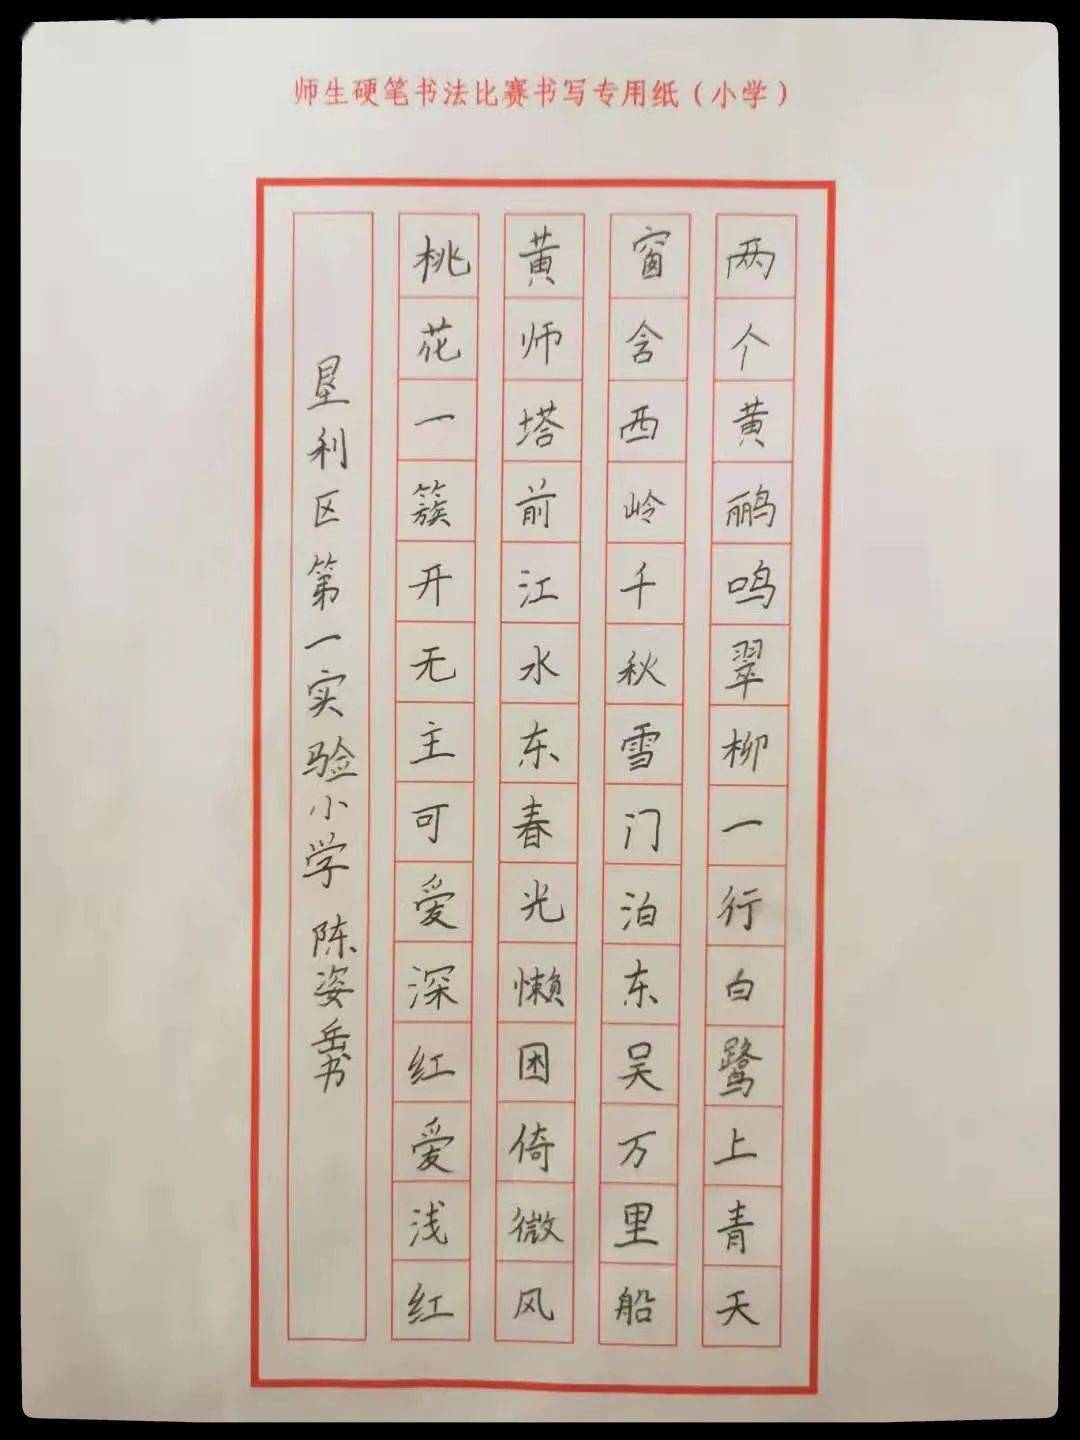 师生硬笔书法比赛书写专用纸（小学）
两个黄鹂鸣翠柳一行白鹭上青天
窗含西岭千秋雪门泊东吴万里船
黄师塔前江水东春光懒困倚微风
桃花一簇开无主可爱深红爱浅红
垦利区第一实验小学 陈姿岳书